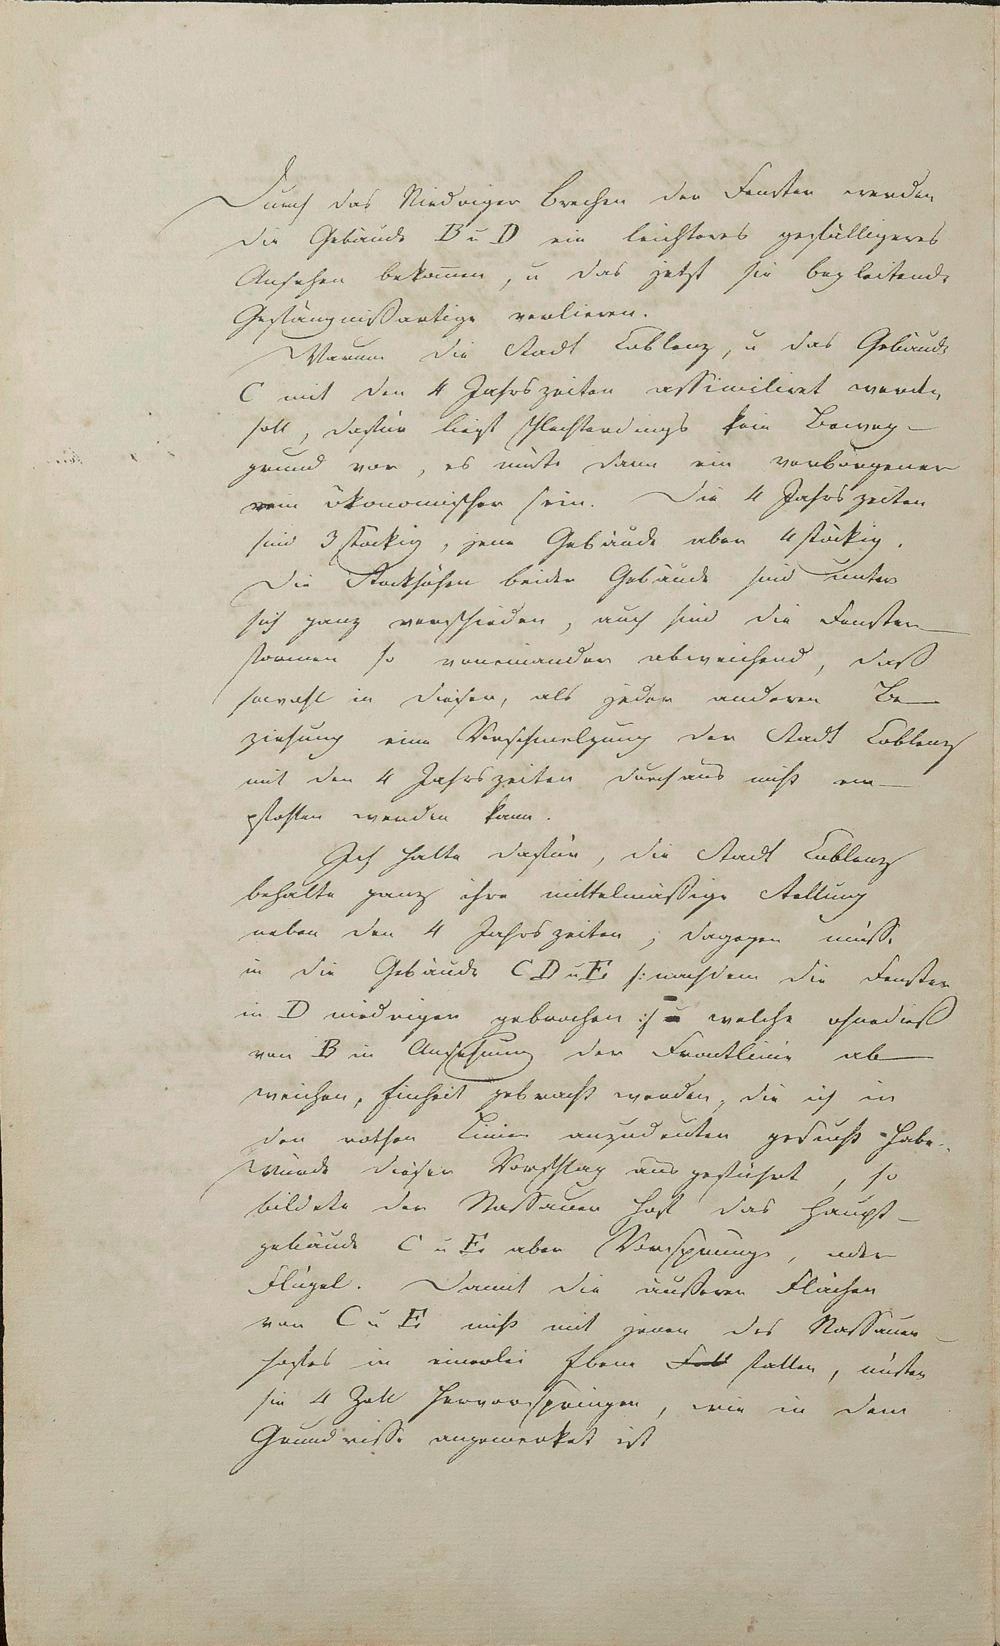 Durch das Niedriger brechen der Fenster werden
die Gebäude B u D ein leichteres gefälligeres
Ansehen bekom̅en, u das jetzt sie begleitende
Gefängnißartige verlieren.
Warum die Stadt Coblenz, u das Gebäude
C mit den 4 Jahrszeiten assimilirt werden
soll, dafür liegt schlechterdings kein Beweg-
grund vor, es müßte dann ein verborgener
rein ökonomischer sein. Die 4 Jahrszeiten
sind 3 stöckig, jene Gebäude aber 4 stöckig.
Die Stockhöhen beider Gebäude sind unter
sich ganz verschieden, auch sind die Fenster
formen so voneinander abweichend, daß
sowohl in dieser, als jeder anderen Be-
ziehung eine Verschmelzung der Stadt Coblenz
mit den 4 Jahrszeiten durchaus nicht em-
pfohlen werden kann.
Ich halte dafür, die Stadt Coblenz
behalte ganz ihre mittelmäßige Stellung
neben den 4 Jahrszeiten, dagegen müsse
in die Gebäude C D u E /: nachdem die Fenster
in D niedriger gebrochen :/ u welche ohnedieß
von B in Ansehung der Frontlinie ab-
weichen, Einheit gebracht werden, die ich in
den rothen Linien anzudeuten gesucht habe.
Würde dieser Vorschlag ausgeführt, so
bildete der Nassauer Hof das Haupt-
gebäude C u E aber Vorsprünge, oder
Flügel. Damit die äußeren Flächen
von C u E nicht mit jenen des Nassauer-
hofes in einerlei Ebene Fall fallen, müßten
sie 4 Zoll hervorspringen, wie in dem
Grundrisse angemerket ist